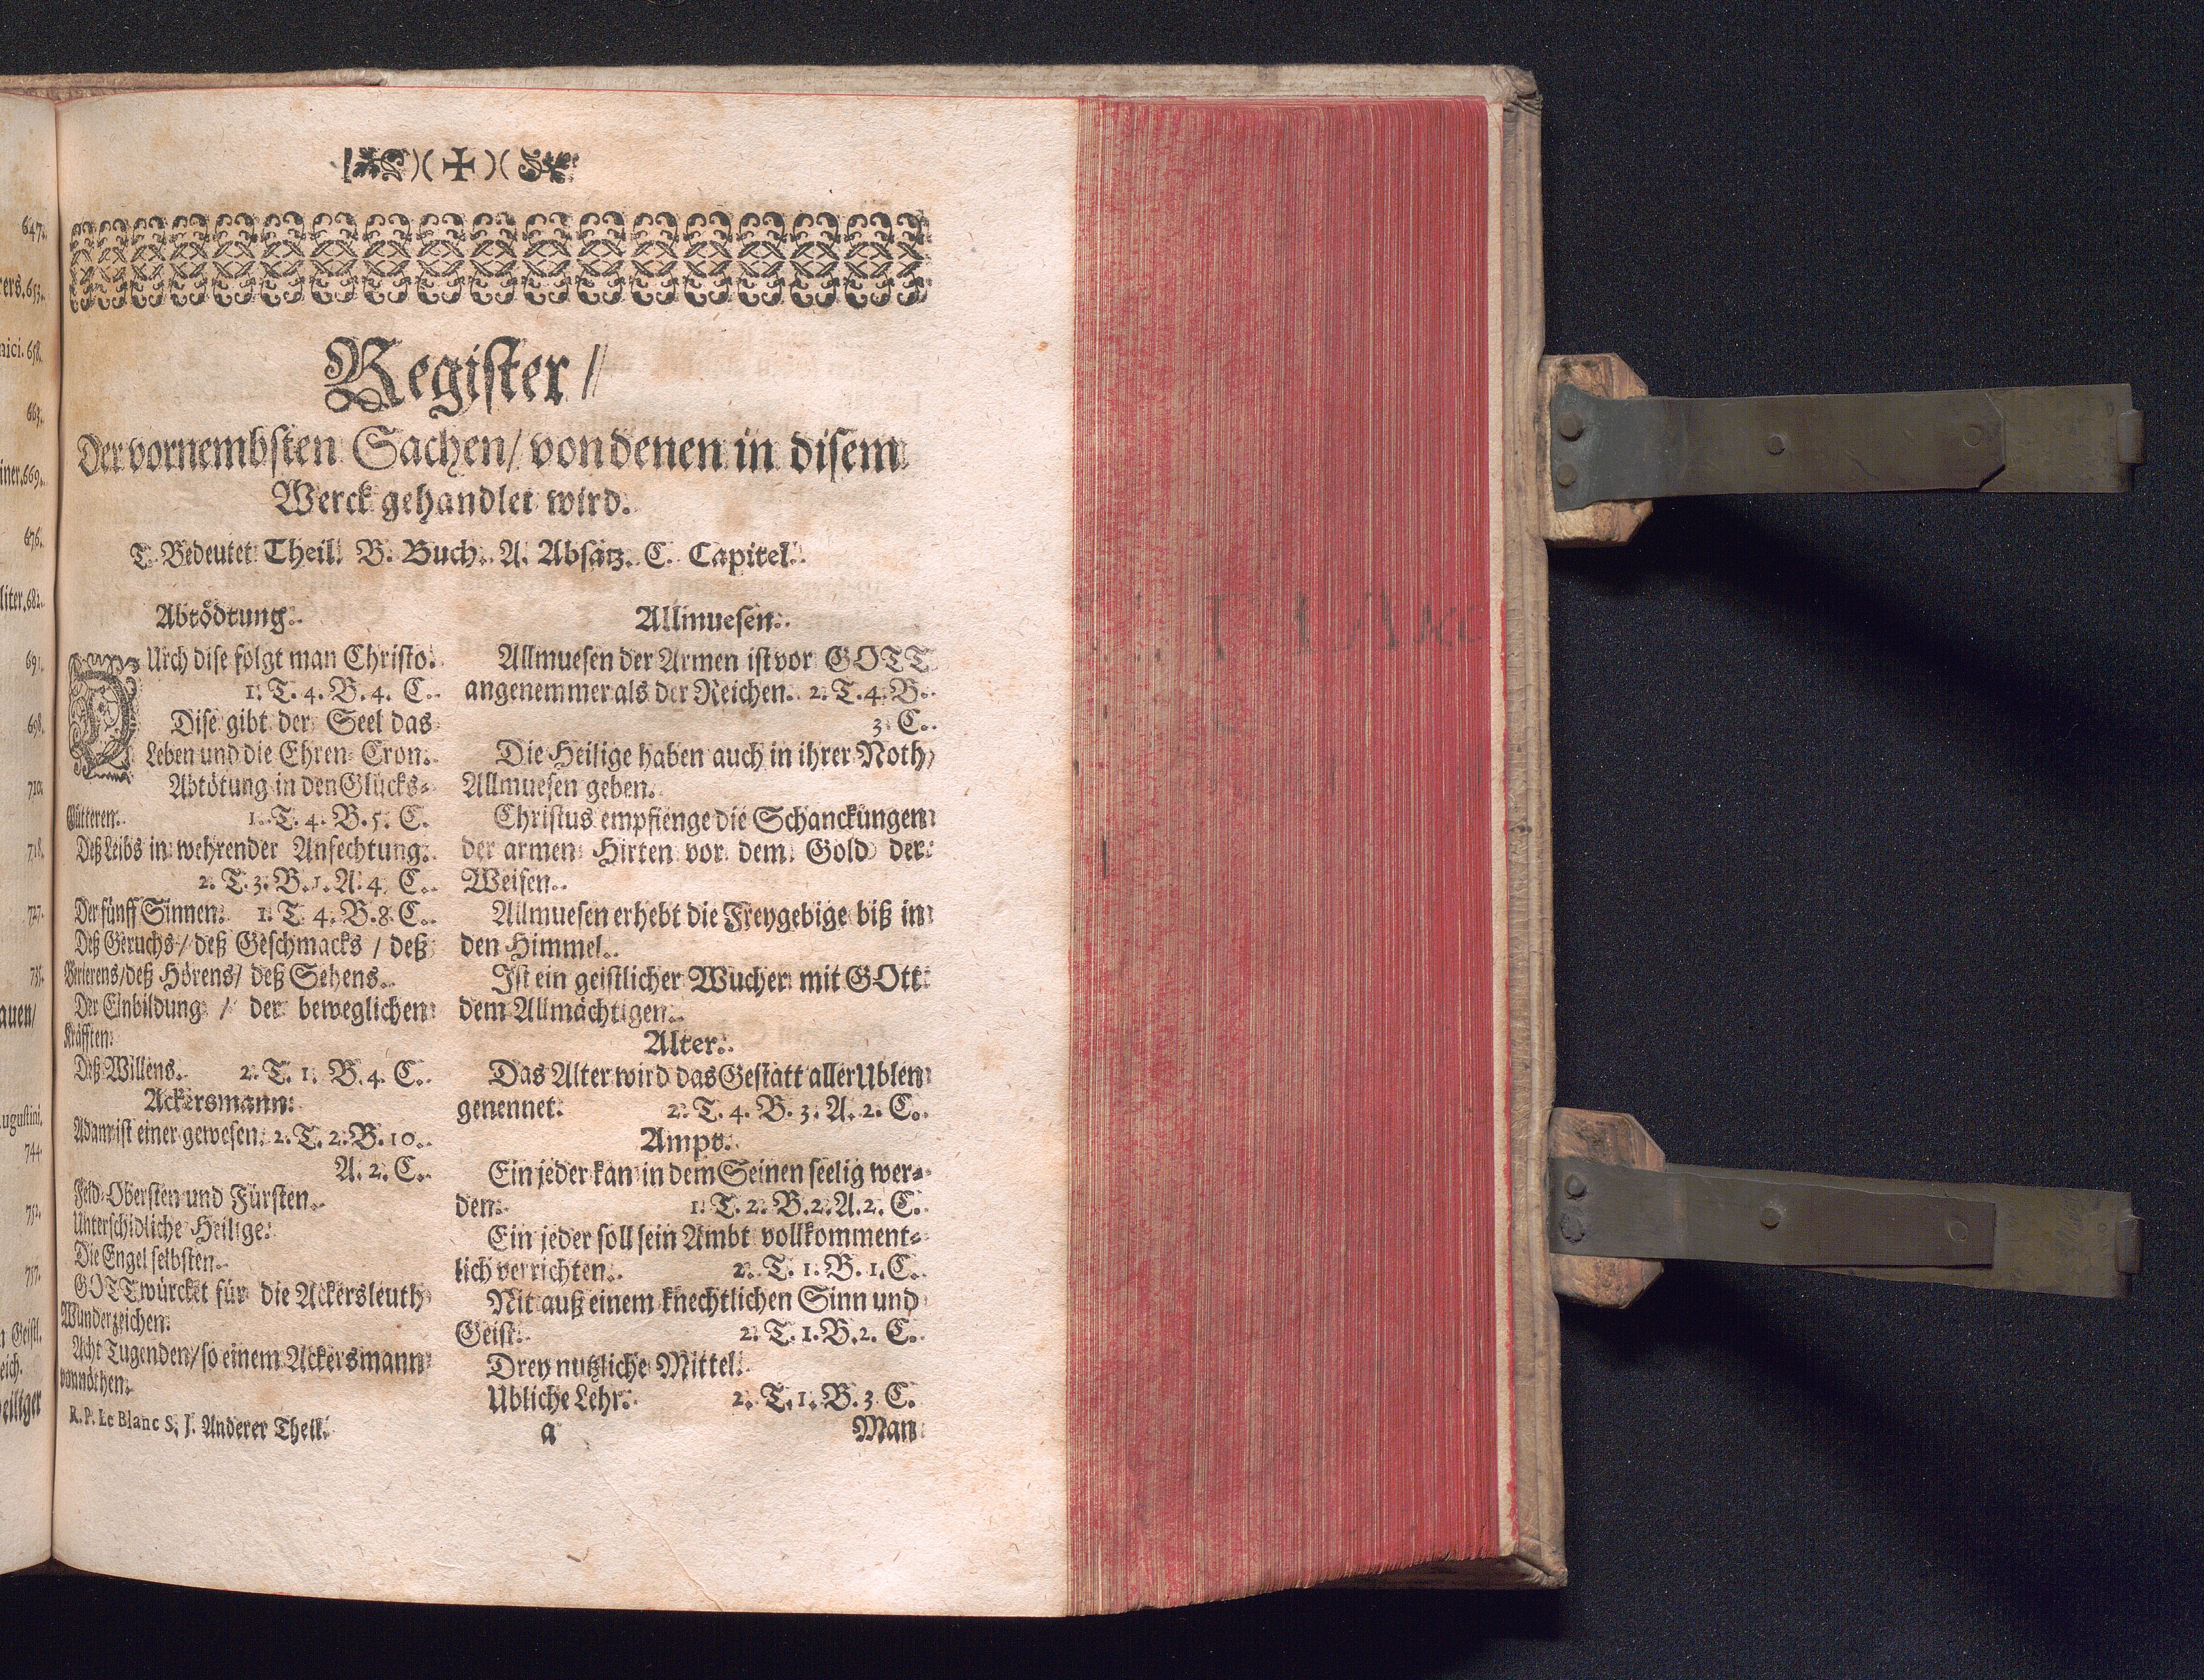 Register/
Der vornembsten Sachen/ von denen in disem
Werck gehandlet wird.
T. Bedeutet Theil. B. Buch. A. Absatz. C. Capitel.
Abtödtung.
DUrch dise folgt man Christo.
1. T. 4. B. 4. C.
Dise gibt der Seel das
Leben und die Ehren-Cron.
Abtötung in den Glücks-
Gütteren. 1. T. 4. B. 5. C.
Deß Leibs in wehrender Anfechtung.
2. T. 3. B. 1. A. 4. C.
Der fünff Sinnen. 1. T. 4. B. 8. C.
Deß Geruchs/ deß Geschmacks / deß
Berierens/ deß Hörens/ deß Sehens.
Der Einbildung / der beweglichen
Kräfften.
Deß Willens. 2. T. 1. B. 4. C.
Ackersmann.
Adam ist einer gewesen. 2. T. 2. B. 10.
A. 2. C.
Feld-Obersten und Fürsten.
Unterschidliche Heilige.
Die Engel selbsten.
GOTT würcket für die Ackersleuth
Wunderzeichen.
Acht Tugenden/ so einem Ackersmann
vonnöthen.
R. P. Le Blanc S. J. Anderer Theil.
Allmuesen.
Allmuesen der Armen ist vor GOTT
angenemmer als der Reichen. 2. T. 4. B.
3. C.
Die Heilige haben auch in ihrer Noth
Allmuesen geben.
Christus empfienge die Schanckungen
der armen Hirten vor dem Gold der
Weisen.
Allmuesen erhebt die Freygebige biß in
den Himmel.
Ist ein geistlicher Wucher mit GOtt
dem Allmächtigen.
Alter.
Das Alter wird das Gestatt aller Ublen
genennet. 2. T. 4. B. 3. A. 2. C.
Ampt.
Ein jeder kan in dem Seinen seelig wer-
den. 1. T. 2. B. 2. A. 2. C.
Ein jeder soll sein Ambt vollkomment-
lich verrichten. 2. T. 1. B. 1. C.
Nit auß einem knechtlichen Sinn und
Geist. 2. T. 1. B. 2. C.
Drey nutzliche Mittel.
Übliche Lehr. 2. T. 1. B. 3. C.
a Man
647.
653.
658.
663.
669.
676.
682.
691.
698.
710.
718.
727.
735.
744.
752.
757.